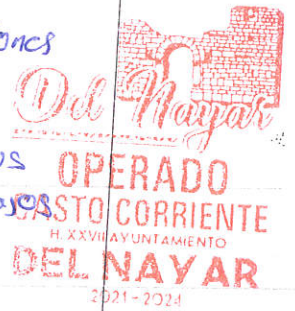 ones
Del Nayar
os
OPERADO
asos
GASTO CORRIENTE
H. XXVII AYUNTAMIENTO
DEL NAYAR
2021-2024